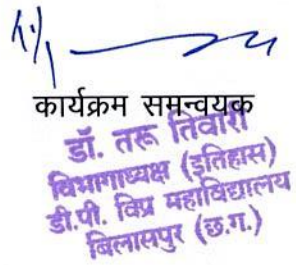 कार्यक्रम समन्वयक
डॉ. तरू तिवारी
विभागाध्यक्ष (इतिहास)
डी.पी. विप्र महाविद्यालय
बिलासपुर (छ.ग.)